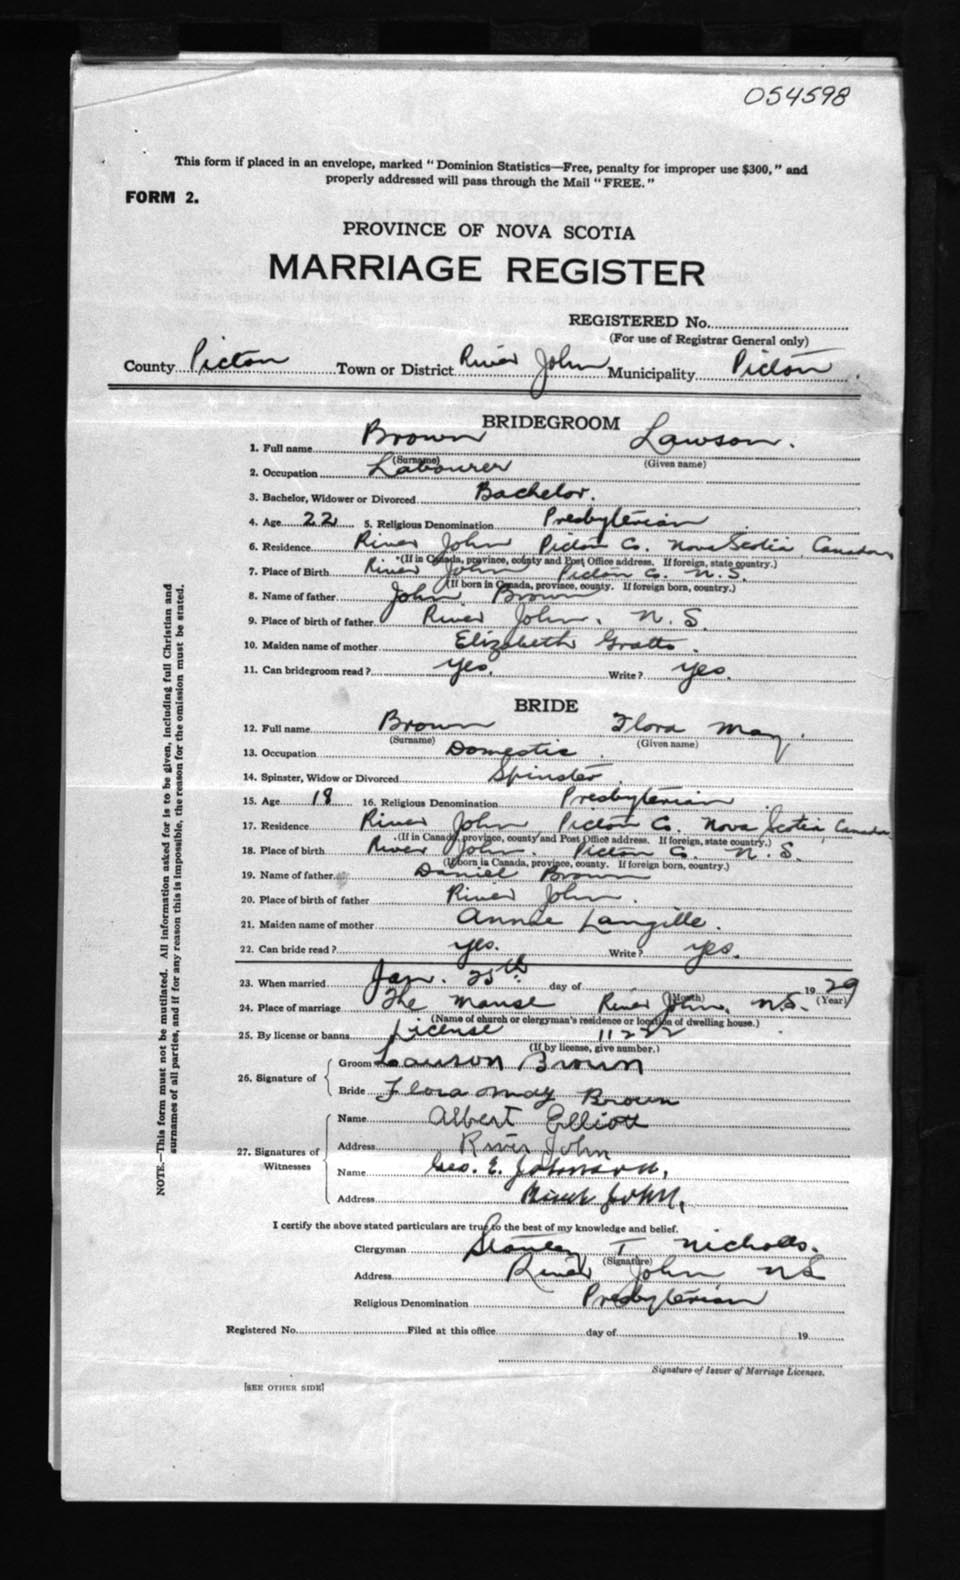 054598
This form if placed in an envelope, marked "Dominion Statistics—Free, penalty for improper use $300," and
properly addressed will pass through the Mail "FREE."
FORM 2.
PROVINCE OF NOVA SCOTIA
MARRIAGE REGISTER
REGISTERED No.
(For use of Registrar General only)
County Pictou Town or District River John Municipality Pictou
BRIDEGROOM
1. Full name Brown Lawson.
(Surname) (Given name)
2. Occupation Labourer
3. Bachelor, Widower or Divorced Bachelor.
4. Age 22 5. Religious Denomination Presbyterian
6. Residence River John Pictou Co. Nova Scotia, Canada
(If in Canada, province, county and Post Office address. If foreign, state country.)
7. Place of Birth River John Pictou Co. N.S.
(If born in Canada, province, county. If foreign born, country.)
8. Name of father John Brown
9. Place of birth of father River John. N.S.
10. Maiden name of mother Elizabeth Gratto.
11. Can bridegroom read? yes. Write? yes.
BRIDE
12. Full name Brown Flora May.
(Surname) (Given name)
13. Occupation Domestic
14. Spinster, Widow or Divorced Spinster.
15. Age 18 16. Religious Denomination Presbyterian
17. Residence River John Pictou Co. Nova Scotia, Canada
(If in Canada, province, county and Post Office address. If foreign, state country.)
18. Place of birth River John. Pictou Co. N.S.
(If born in Canada, province, county. If foreign born, country.)
19. Name of father Daniel Brown
20. Place of birth of father River John.
21. Maiden name of mother Annie Langille.
22. Can bride read? yes. Write? yes.
23. When married Jan. 25th day of 1929
(Month) (Year)
24. Place of marriage The Manse River John, N.S.
(Name of church or clergyman's residence or location of dwelling house.)
25. By license or banns License 11222
(If by license, give number.)
26. Signature of
Groom Lawson Brown
Bride Flora May Brown
27. Signatures of Witnesses
Name Albert Elliott
Address River John
Name Geo. E.
Address River John,
I certify the above stated particulars are true to the best of my knowledge and belief.
Clergyman Stanley T Nicholls.
(Signature)
Address River John NS
Religious Denomination Presbyterian
Registered No. Filed at this office day of 19
Signature of Issuer of Marriage Licenses.
[SEE OTHER SIDE]
NOTE.—This form must not be mutilated. All information asked for is to be given, including full Christian and
surnames of all parties, and if for any reason this is impossible, the reason for the omission must be stated.